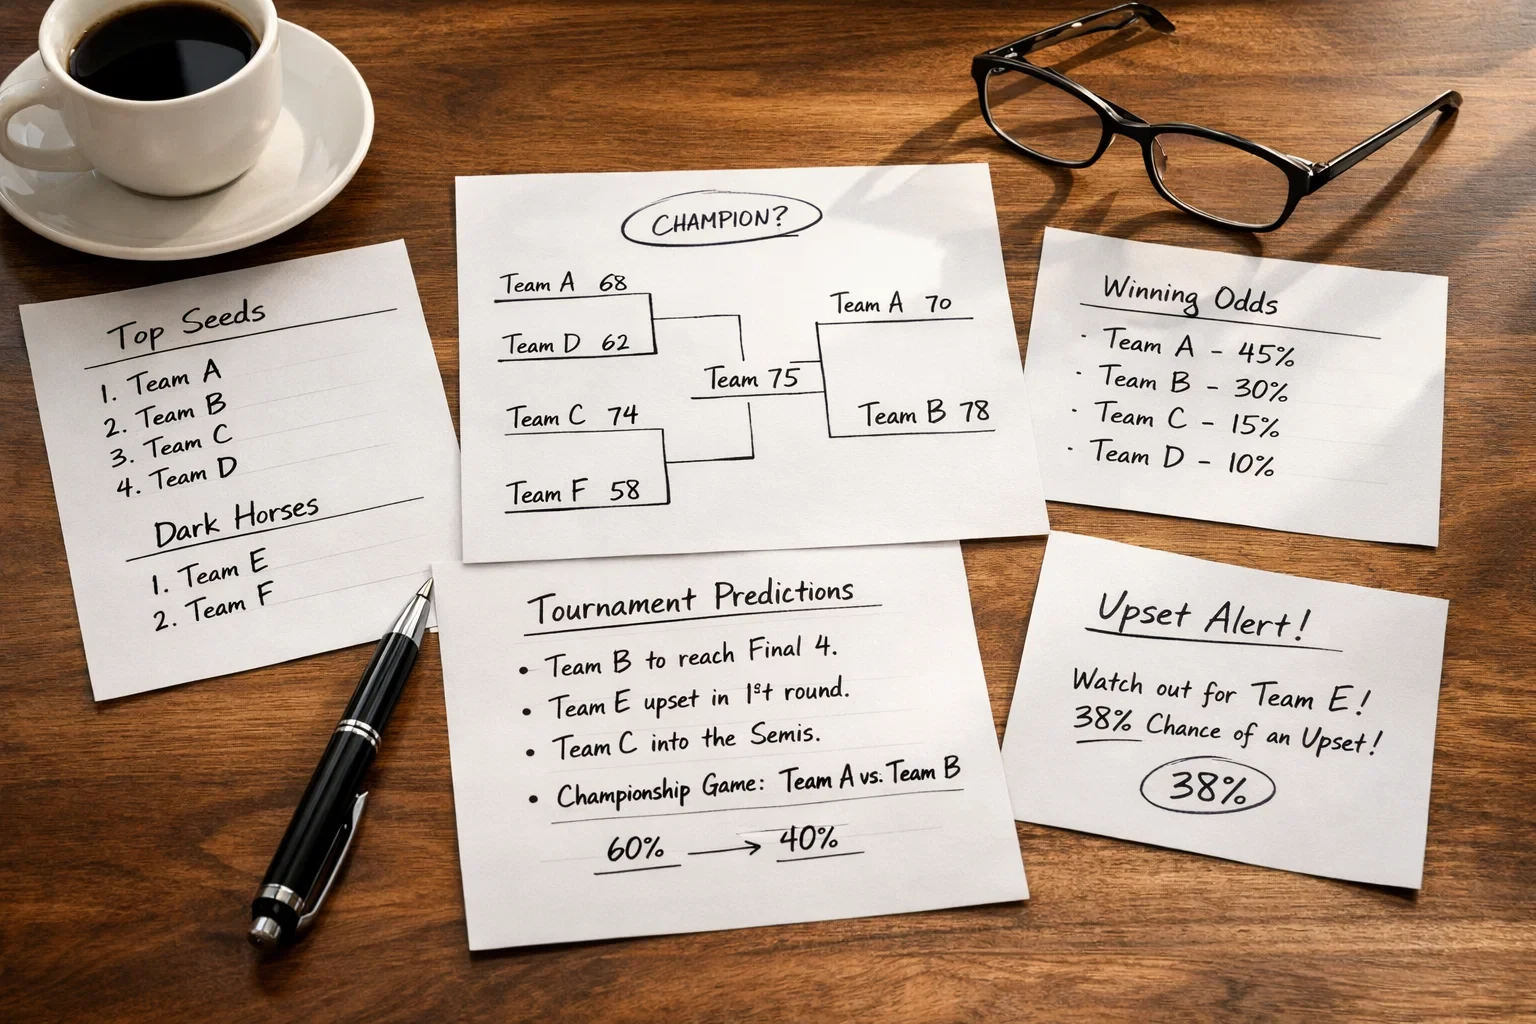 Top Seeds
1. Team A
2. Team B
3. Team C
4. Team D
Dark Horses
1. Team E
2. Team F
CHAMPION?
Team A 68
Team D 62
Team C 74
Team F 58
Team 75
Team A 70
Team B 78
Winning Odds
· Team A - 45%
· Team B - 30%
· Team C - 15%
· Team D - 10%
Tournament Predictions
• Team B to reach Final 4.
• Team E upset in 1st round.
• Team C into the Semis.
• Championship Game: Team A vs. Team B
60% → 40%
Upset Alert!
Watch out for Team E!
38% Chance of an Upset!
38%